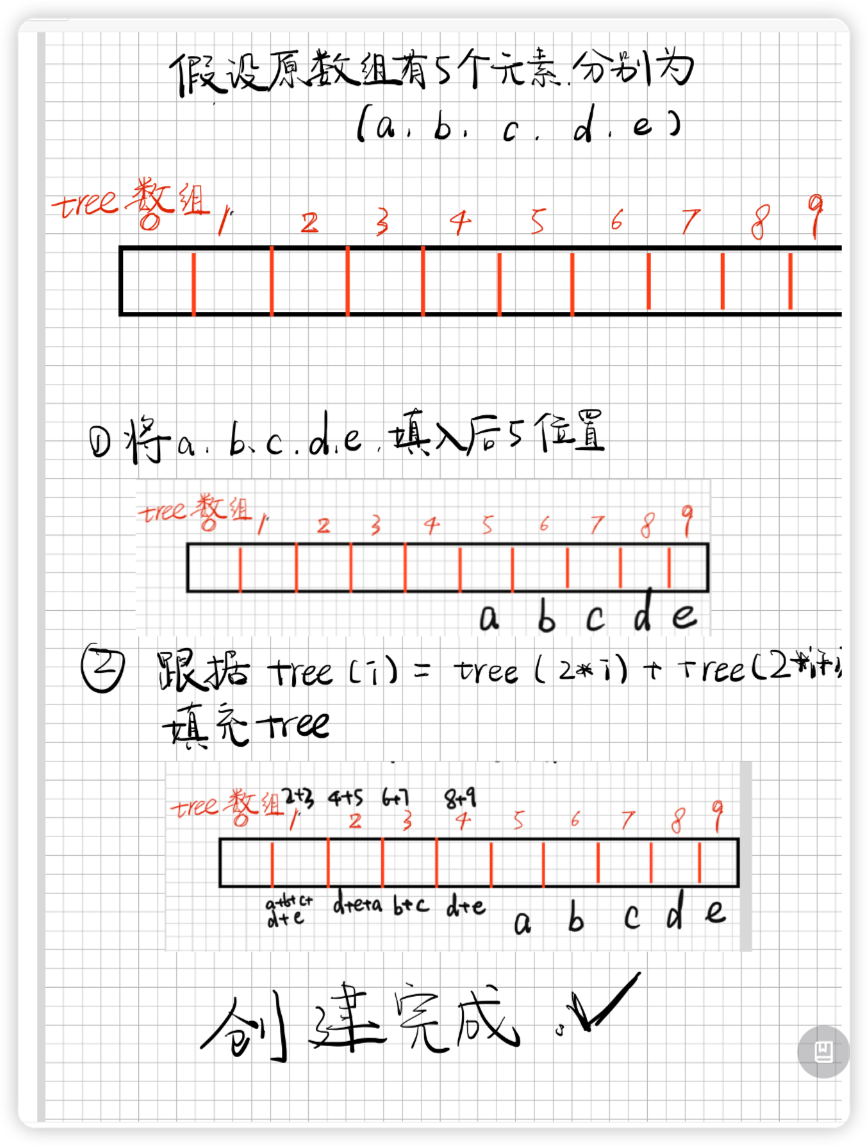 假设原数组有5个元素.分别为
(a. b. c. d. e)
tree 数组
0 1 2 3 4 5 6 7 8 9
①将a.b、c.d.e.填入后5位置
tree 数组
0 1 2 3 4 5 6 7 8 9
a b c d e
② 跟据 tree (i) = tree (2*i) + tree(2*i+
填充tree
2+3 4+5 6+7 8+9
tree 数组
0 1 2 3 4 5 6 7 8 9
a+b+c+
d+e
d+e+a b+c d+e a b c d e
创建完成.